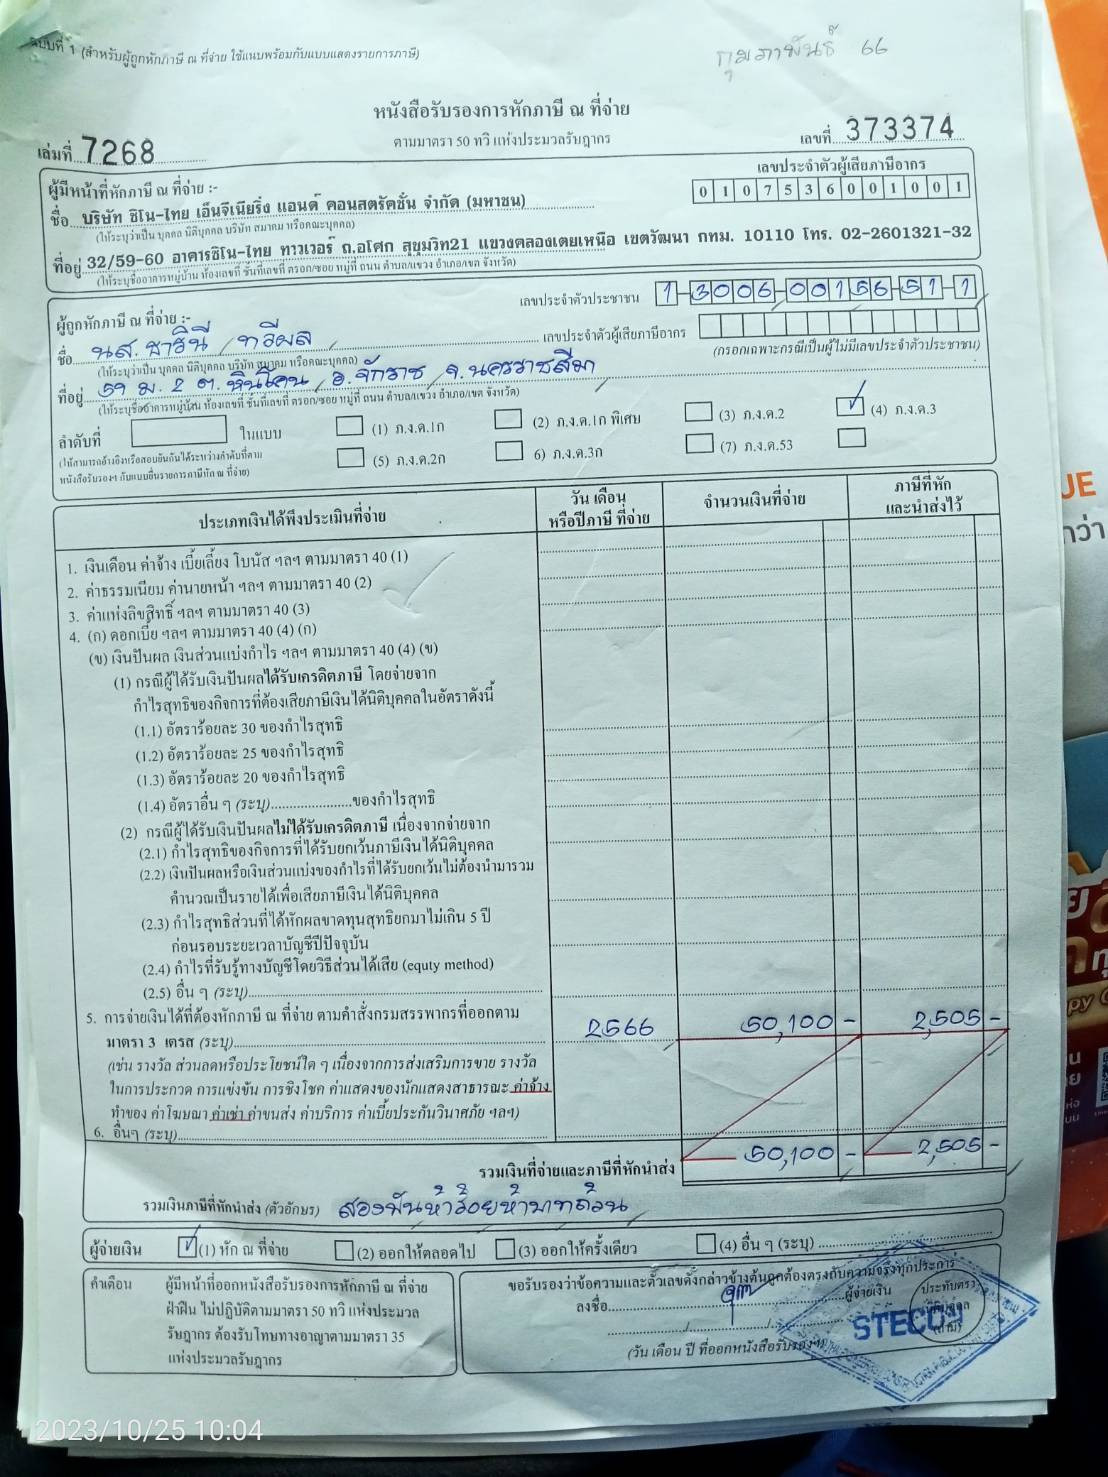 ฉบับที่ 1 (สำหรับผู้ถูกหักภาษี ณ ที่จ่าย ใช้แนบพร้อมกับแบบแสดงรายการภาษี)
กุมภาพันธ์ 66
หนังสือรับรองการหักภาษี ณ ที่จ่าย
ตามมาตรา 50 ทวิ แห่งประมวลรัษฎากร
เล่มที่ 7268
เลขที่ 373374
ผู้มีหน้าที่หักภาษี ณ ที่จ่าย :-
เลขประจำตัวผู้เสียภาษีอากร
0107536001001
ชื่อ บริษัท ซิโน-ไทย เอ็นจีเนียริ่ง แอนด์ คอนสตรัคชั่น จำกัด (มหาชน)
(ให้ระบุว่าเป็น บุคคล นิติบุคคล บริษัท สมาคม หรือคณะบุคคล)
ที่อยู่ 32/59-60 อาคารซิโน-ไทย ทาวเวอร์ ถ.อโศก สุขุมวิท21 แขวงคลองเตยเหนือ เขตวัฒนา กทม. 10110 โทร. 02-2601321-32
(ให้ระบุชื่ออาคารหมู่บ้าน ห้องเลขที่ ชั้นที่เลขที่ ตรอก/ซอย หมู่ที่ ถนน ตำบล/แขวง อำเภอ/เขต จังหวัด)
ผู้ถูกหักภาษี ณ ที่จ่าย :-
เลขประจำตัวประชาชน 1-3006-00156-51-1
ชื่อ นส. ชารินี ทวีผล
เลขประจำตัวผู้เสียภาษีอากร
(ให้ระบุว่าเป็น บุคคล นิติบุคคล บริษัท สมาคม หรือคณะบุคคล)
(กรอกเฉพาะกรณีเป็นผู้ไม่มีเลขประจำตัวประชาชน)
ที่อยู่ 59 ม. 2 ต. หินโคน อ. จักราช จ. นครราชสีมา
(ให้ระบุชื่ออาคารหมู่บ้าน ห้องเลขที่ ชั้นที่เลขที่ ตรอก/ซอย หมู่ที่ ถนน ตำบล/แขวง อำเภอ/เขต จังหวัด)
ลำดับที่ ในแบบ (1) ภ.ง.ด.1ก (2) ภ.ง.ด.1ก พิเศษ (3) ภ.ง.ด.2 ✓ (4) ภ.ง.ด.3
(ให้สามารถอ้างอิงหรือสอบยันกันได้ระหว่างลำดับที่ตาม
หนังสือรับรองฯ กับแบบยื่นรายการภาษีหัก ณ ที่จ่าย)
(5) ภ.ง.ด.2ก 6) ภ.ง.ด.3ก (7) ภ.ง.ด.53
ประเภทเงินได้พึงประเมินที่จ่าย
วัน เดือน
หรือปีภาษี ที่จ่าย
จำนวนเงินที่จ่าย
ภาษีที่หัก
และนำส่งไว้
1. เงินเดือน ค่าจ้าง เบี้ยเลี้ยง โบนัส ฯลฯ ตามมาตรา 40 (1)
2. ค่าธรรมเนียม ค่านายหน้า ฯลฯ ตามมาตรา 40 (2)
3. ค่าแห่งลิขสิทธิ์ ฯลฯ ตามมาตรา 40 (3)
4. (ก) ดอกเบี้ย ฯลฯ ตามมาตรา 40 (4) (ก)
(ข) เงินปันผล เงินส่วนแบ่งกำไร ฯลฯ ตามมาตรา 40 (4) (ข)
(1) กรณีผู้ได้รับเงินปันผลได้รับเครดิตภาษี โดยจ่ายจาก
กำไรสุทธิของกิจการที่ต้องเสียภาษีเงินได้นิติบุคคลในอัตราดังนี้
(1.1) อัตราร้อยละ 30 ของกำไรสุทธิ
(1.2) อัตราร้อยละ 25 ของกำไรสุทธิ
(1.3) อัตราร้อยละ 20 ของกำไรสุทธิ
(1.4) อัตราอื่น ๆ (ระบุ)....................ของกำไรสุทธิ
(2) กรณีผู้ได้รับเงินปันผลไม่ได้รับเครดิตภาษี เนื่องจากจ่ายจาก
(2.1) กำไรสุทธิของกิจการที่ได้รับยกเว้นภาษีเงินได้นิติบุคคล
(2.2) เงินปันผลหรือเงินส่วนแบ่งของกำไรที่ได้รับยกเว้นไม่ต้องนำมารวม
คำนวณเป็นรายได้เพื่อเสียภาษีเงินได้นิติบุคคล
(2.3) กำไรสุทธิส่วนที่ได้หักผลขาดทุนสุทธิยกมาไม่เกิน 5 ปี
ก่อนรอบระยะเวลาบัญชีปีปัจจุบัน
(2.4) กำไรที่รับรู้ทางบัญชีโดยวิธีส่วนได้เสีย (equty method)
(2.5) อื่น ๆ (ระบุ)
5. การจ่ายเงินได้ที่ต้องหักภาษี ณ ที่จ่าย ตามคำสั่งกรมสรรพากรที่ออกตาม 2566 50,100 - 2,505 -
มาตรา 3 เตรส (ระบุ)
(เช่น รางวัล ส่วนลดหรือประโยชน์ใด ๆ เนื่องจากการส่งเสริมการขาย รางวัล
ในการประกวด การแข่งขัน การชิงโชค ค่าแสดงของนักแสดงสาธารณะ ค่าจ้าง
ทำของ ค่าโฆษณา ค่าเช่า ค่าขนส่ง ค่าบริการ ค่าเบี้ยประกันวินาศภัย ฯลฯ)
6. อื่นๆ (ระบุ)
รวมเงินที่จ่ายและภาษีที่หักนำส่ง 50,100 - 2,505 -
รวมเงินภาษีที่หักนำส่ง (ตัวอักษร) สองพันห้าร้อยห้าบาทถ้วน
ผู้จ่ายเงิน ✓ (1) หัก ณ ที่จ่าย (2) ออกให้ตลอดไป (3) ออกให้ครั้งเดียว (4) อื่น ๆ (ระบุ)
คำเตือน ผู้มีหน้าที่ออกหนังสือรับรองการหักภาษี ณ ที่จ่าย
ฝ่าฝืน ไม่ปฏิบัติตามมาตรา 50 ทวิ แห่งประมวล
รัษฎากร ต้องรับโทษทางอาญาตามมาตรา 35
แห่งประมวลรัษฎากร
ขอรับรองว่าข้อความและตัวเลขดังกล่าวข้างต้นถูกต้องตรงกับความจริงทุกประการ
ลงชื่อ ผู้จ่ายเงิน
ประทับตรา
นิติบุคคล
(ถ้ามี)
STECON
(วัน เดือน ปี ที่ออกหนังสือรับรองฯ)
2023/10/25 10:04